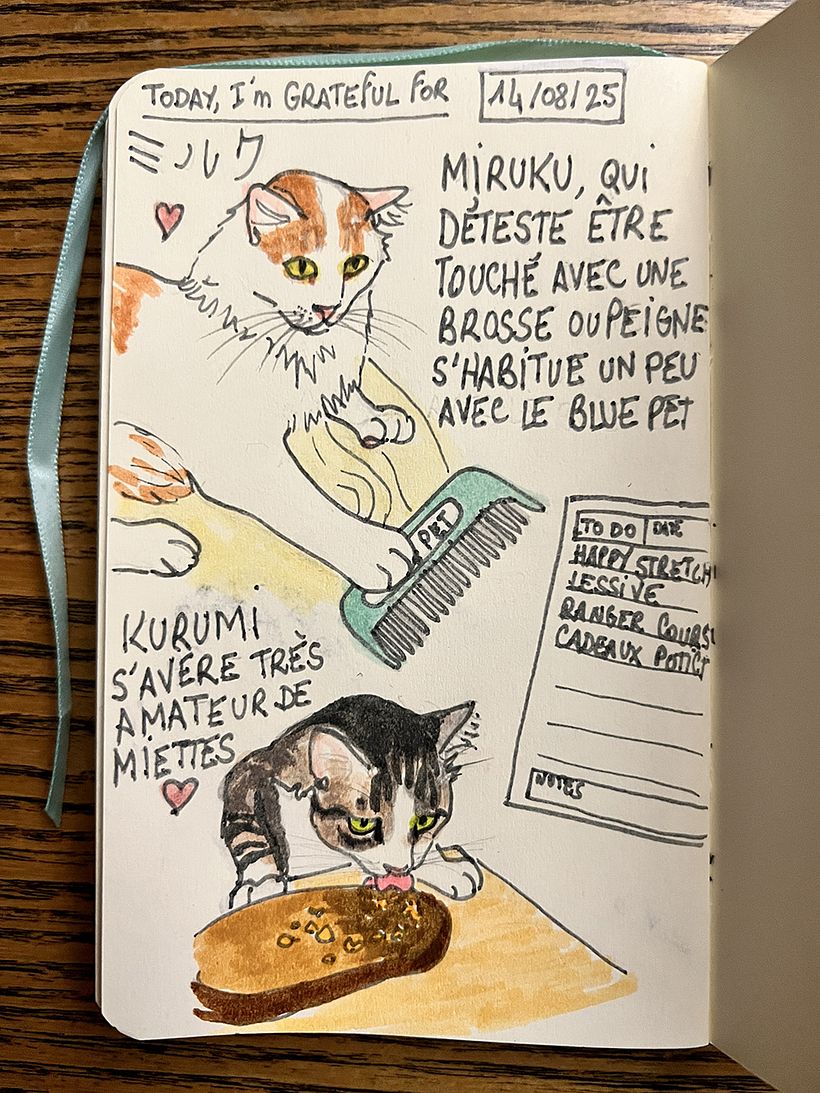 TODAY, I'm GRATEFUL FOR
14/08/25
ミルク
MIRUKU, QUI
DÉTESTE ÊTRE
TOUCHÉ AVEC UNE
BROSSE OU PEIGNE
S'HABITUE UN PEU
AVEC LE BLUE PET
PET
TO DO DATE
HAPPY STRETCH
LESSIVE
RANGER COURS
CADEAUX
NOTES
KURUMI
S'AVÉRE TRÈS
AMATEUR DE
MIETTES